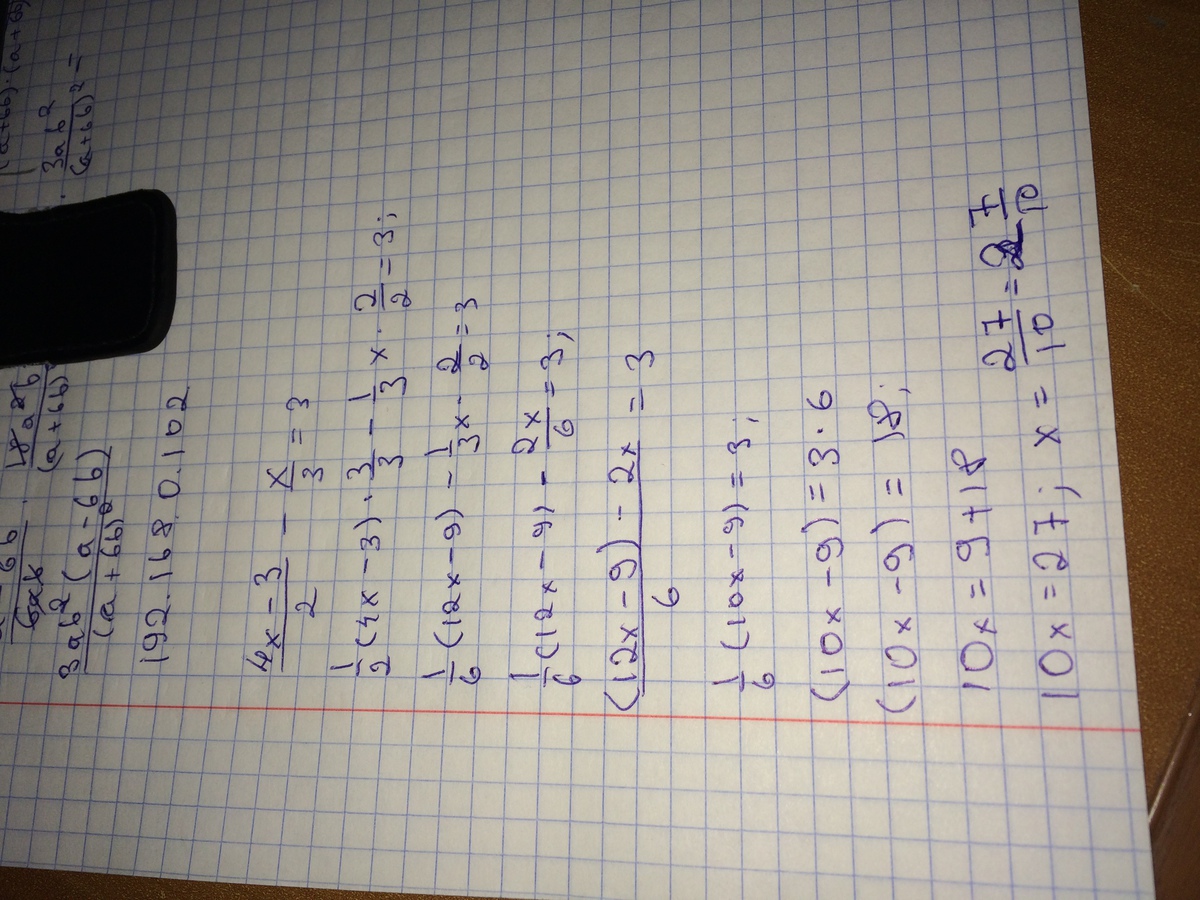 (a+6b)·(a+6b)
3ab²/(a+6b)² =
6ab
(a+6b)
3ab²(a-6b)/(a+6b)²
192.168.0.102
(4x-3)/2 - x/3 = 3
1/2(4x-3)·3/3 - 1/3x·2/2=3;
1/6(12x-9) - 1/3x·2/2=3
1/6(12x-9) - 2x/6=3;
((12x-9)-2x)/6 = 3
1/6(10x-9)=3;
(10x-9)=3·6
(10x-9)=18;
10x=9+18
10x=27; x=27/10=2 7/10